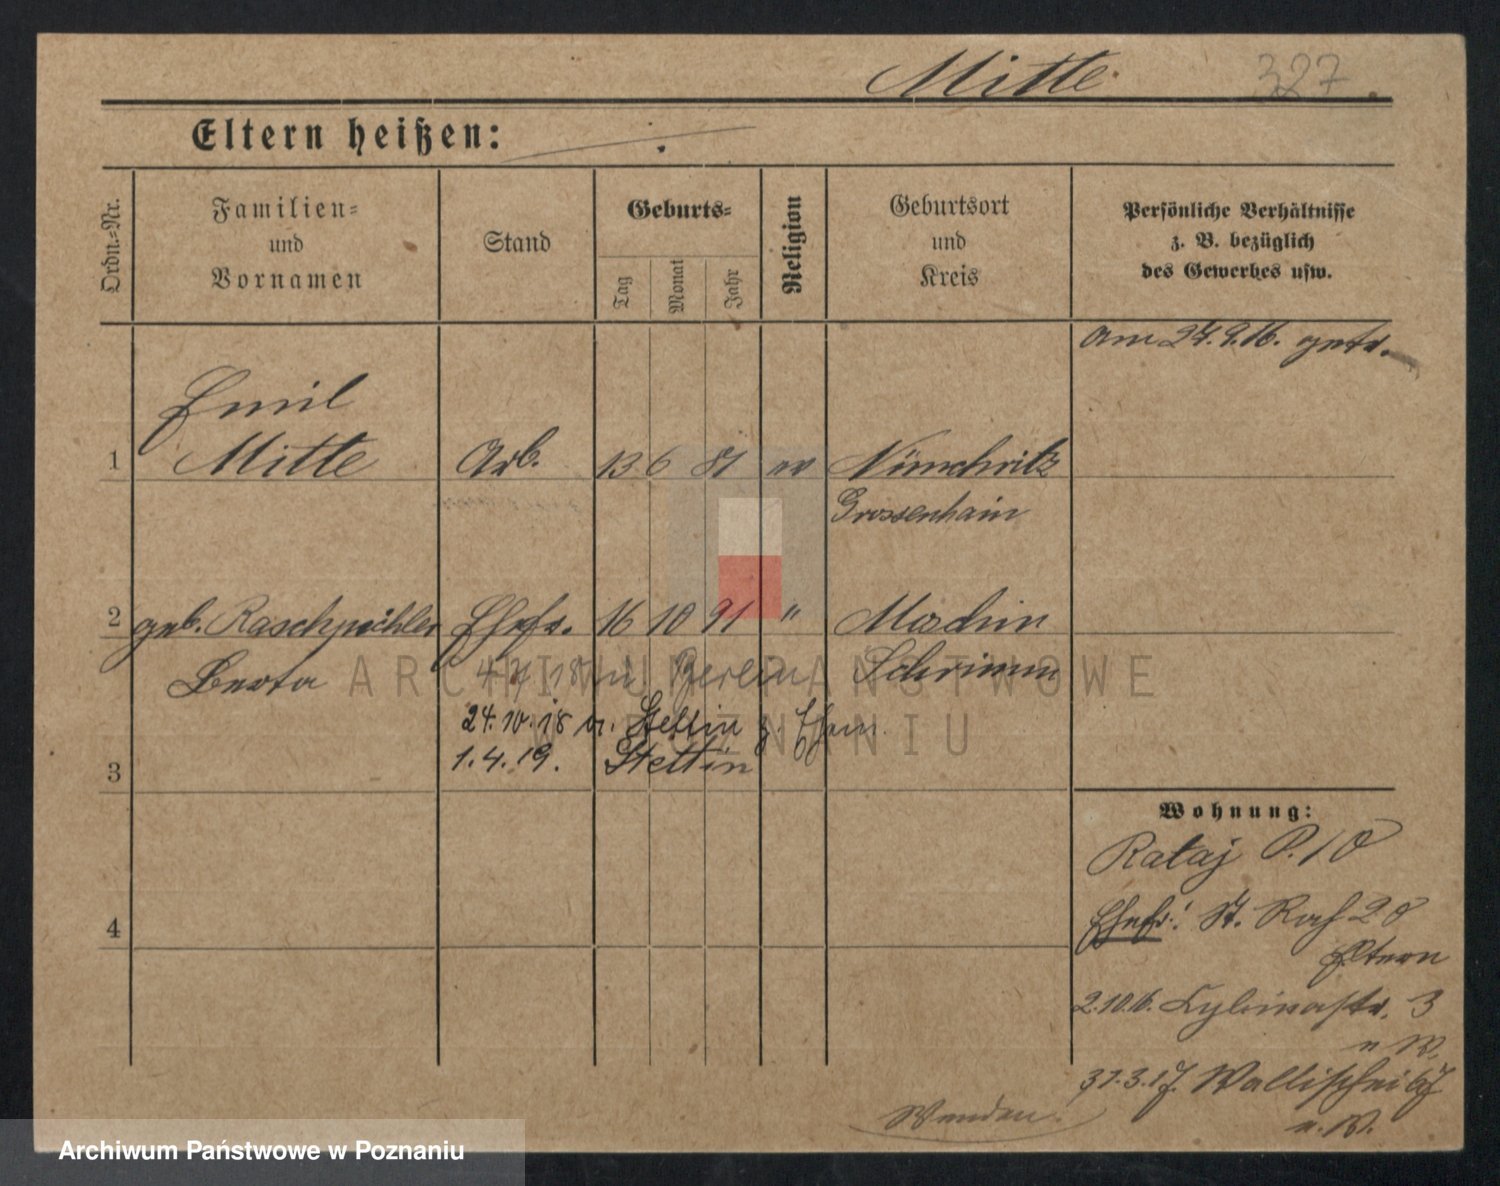 Mitte
327.
Eltern heißen:
Ordn.-Nr.
Familien-
und
Vornamen
Stand
Geburts-
Tag
Monat
Jahr
Religion
Geburtsort
und
Kreis
Persönliche Verhältnisse
z. B. bezüglich
des Gewerbes usw.
am 24.9.16. getr.
Emil
1 Mitte Arb. 13 6 81 ev Nünchritz
Grossenhain
2 geb. Raschpichler Ehefr. 16 10 91 " Mochin
Berta Schrimm
Berlin
24.10.18 n. Stettin z. Ehem.
3 1.4.19. Stettin
4
Wohnung:
Rataj P. 10
Ehefr: St. Roch 20
Eltern
2.10.16. Cybinastr. 3
b. W.
31.3.17. Wallischei 67
b. W.
Wenden!
ARCHIWUM PAŃSTWOWE
W POZNANIU
Archiwum Państwowe w Poznaniu